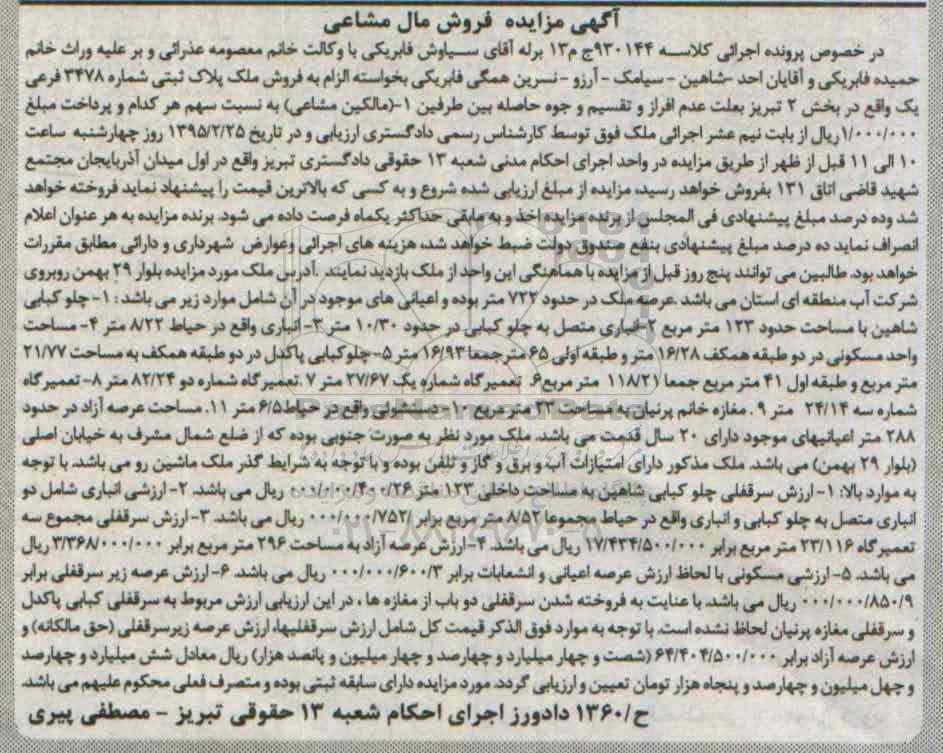 آگهی مزایده فروش مال مشاعی
در خصوص پرونده اجرائی کلاسه ۹۳۰۱۴۴ج م۱۳ برله آقای سیاوش فابریکی با وکالت خانم معصومه عذرائی و بر علیه وراث خانم
حمیده فابریکی و آقایان احد -شاهین - سیامک - آرزو - نسرین همگی فابریکی بخواسته الزام به فروش ملک پلاک ثبتی شماره ۳۴۷۸ فرعی
یک واقع در بخش ۲ تبریز بعلت عدم افراز و تقسیم و جوه حاصله بین طرفین ۱-(مالکین مشاعی) به نسبت سهم هر کدام و پرداخت مبلغ
۱/۰۰۰/۰۰۰ریال از بابت نیم عشر اجرائی ملک فوق توسط کارشناس رسمی دادگستری ارزیابی و در تاریخ ۱۳۹۵/۲/۲۵ روز چهارشنبه ساعت
۱۰ الی ۱۱ قبل از ظهر از طریق مزایده در واحد اجرای احکام مدنی شعبه ۱۳ حقوقی دادگستری تبریز واقع در اول میدان آذربایجان مجتمع
شهید قاضی اتاق ۱۳۱ بفروش خواهد رسید، مزایده از مبلغ ارزیابی شده شروع و به کسی که بالاترین قیمت را پیشنهاد نماید فروخته خواهد
شد وده درصد مبلغ پیشنهادی فی المجلس از برنده مزایده اخذ و به مابقی حداکثر یکماه فرصت داده می شود. برنده مزایده به هر عنوان اعلام
انصراف نماید ده درصد مبلغ پیشنهادی بنفع صندوق دولت ضبط خواهد شد، هزینه های اجرائی وعوارض شهرداری و دارائی مطابق مقررات
خواهد بود. طالبین می توانند پنج روز قبل از مزایده با هماهنگی این واحد از ملک بازدید نمایند .آدرس ملک مورد مزایده بلوار ۲۹ بهمن روبروی
شرکت آب منطقه ای استان می باشد .عرصه ملک در حدود ۷۲۲ متر بوده و اعیانی های موجود در آن شامل موارد زیر می باشد: ۱- چلو کبابی
شاهین با مساحت حدود ۱۲۳ متر مربع ۲-انباری متصل به چلو کبابی در حدود ۱۰/۳۰ متر ۳- انباری واقع در حیاط ۸/۲۲ متر ۴- مساحت
واحد مسکونی در دو طبقه همکف ۱۶/۲۸ متر و طبقه اولی ۶۵ مترجمعا ۱۶/۹۳ متر ۵- چلوکبابی پاکدل در دو طبقه همکف به مساحت ۲۱/۷۷
متر مربع و طبقه اول ۴۱ متر مربع جمعا ۱۱۸/۲۱ متر مربع۶. تعمیرگاه شماره یک ۲۷/۶۷ متر ۷.تعمیرگاه شماره دو ۸۲/۲۴ متر ۸- تعمیرگاه
شماره سه ۲۴/۱۴ متر ۹ . مغازه خانم پرنیان به مساحت ۲۲ متر مربع ۱۰- دستشوئی واقع در حیاط ۶/۵ متر ۱۱. مساحت عرصه آزاد در حدود
۲۸۸ متر اعیانیهای موجود دارای ۲۰ سال قدمت می باشد. ملک مورد نظر به صورت جنوبی بوده که از ضلع شمال مشرف به خیابان اصلی
(بلوار ۲۹ بهمن) می باشد. ملک مذکور دارای امتیازات آب و برق و گاز و تلفن بوده و با توجه به شرایط گذر ملک ماشین رو می باشد. با توجه
به موارد بالا: ۱- ارزش سرقفلی چلو کبابی شاهین به مساحت داخلی ۱۲۳ متر ۰۰۰/۰۰۰/۴۰۰/۲۶ ریال می باشد. ۲- ارزشی انباری شامل دو
انباری متصل به چلو کبابی و انباری واقع در حیاط مجموعا ۸/۵۲ متر مربع برابر ۰۰۰/۰۰۰/۷۵۲/ ریال می باشد. ۳- ارزش سرقفلی مجموع سه
تعمیرگاه ۲۳/۱۱۶ متر مربع برابر ۱۷/۴۳۴/۵۰۰/۰۰۰ ریال می باشد. ۴- ارزش عرصه آزاد به مساحت ۲۹۶ متر مربع برابر ۳/۳۶۸/۰۰۰/۰۰۰ ریال
می باشد. ۵- ارزشی مسکونی با لحاظ ارزش عرصه اعیانی و انشعابات برابر ۰۰۰/۰۰۰/۶۰۰/۳ ریال می باشد. ۶- ارزش عرصه زیر سرقفلی برابر
۰۰۰/۰۰۰/۸۵۰/۹ ریال می باشد. با عنایت به فروخته شدن سرقفلی دو باب از مغازه ها ، در این ارزیابی ارزش مربوط به سرقفلی کبابی پاکدل
و سرقفلی مغازه پرنیان لحاظ نشده است. با توجه به موارد فوق الذکر قیمت کل شامل ارزش سرقفلیها، ارزش عرصه زیرسرقفلی (حق مالکانه) و
ارزش عرصه آزاد برابر ۶۴/۴۰۴/۵۰۰/۰۰۰ (شصت و چهار میلیارد و چهارصد و چهار میلیون و پانصد هزار) ریال معادل شش میلیارد و چهارصد
و چهل میلیون و چهارصد و پنجاه هزار تومان تعیین و ارزیابی گردد. مورد مزایده دارای سابقه ثبتی بوده و متصرف فعلی محکوم علیهم می باشد.
ح/۱۳۶۰ دادورز اجرای احکام شعبه ۱۳ حقوقی تبریز - مصطفی پیری